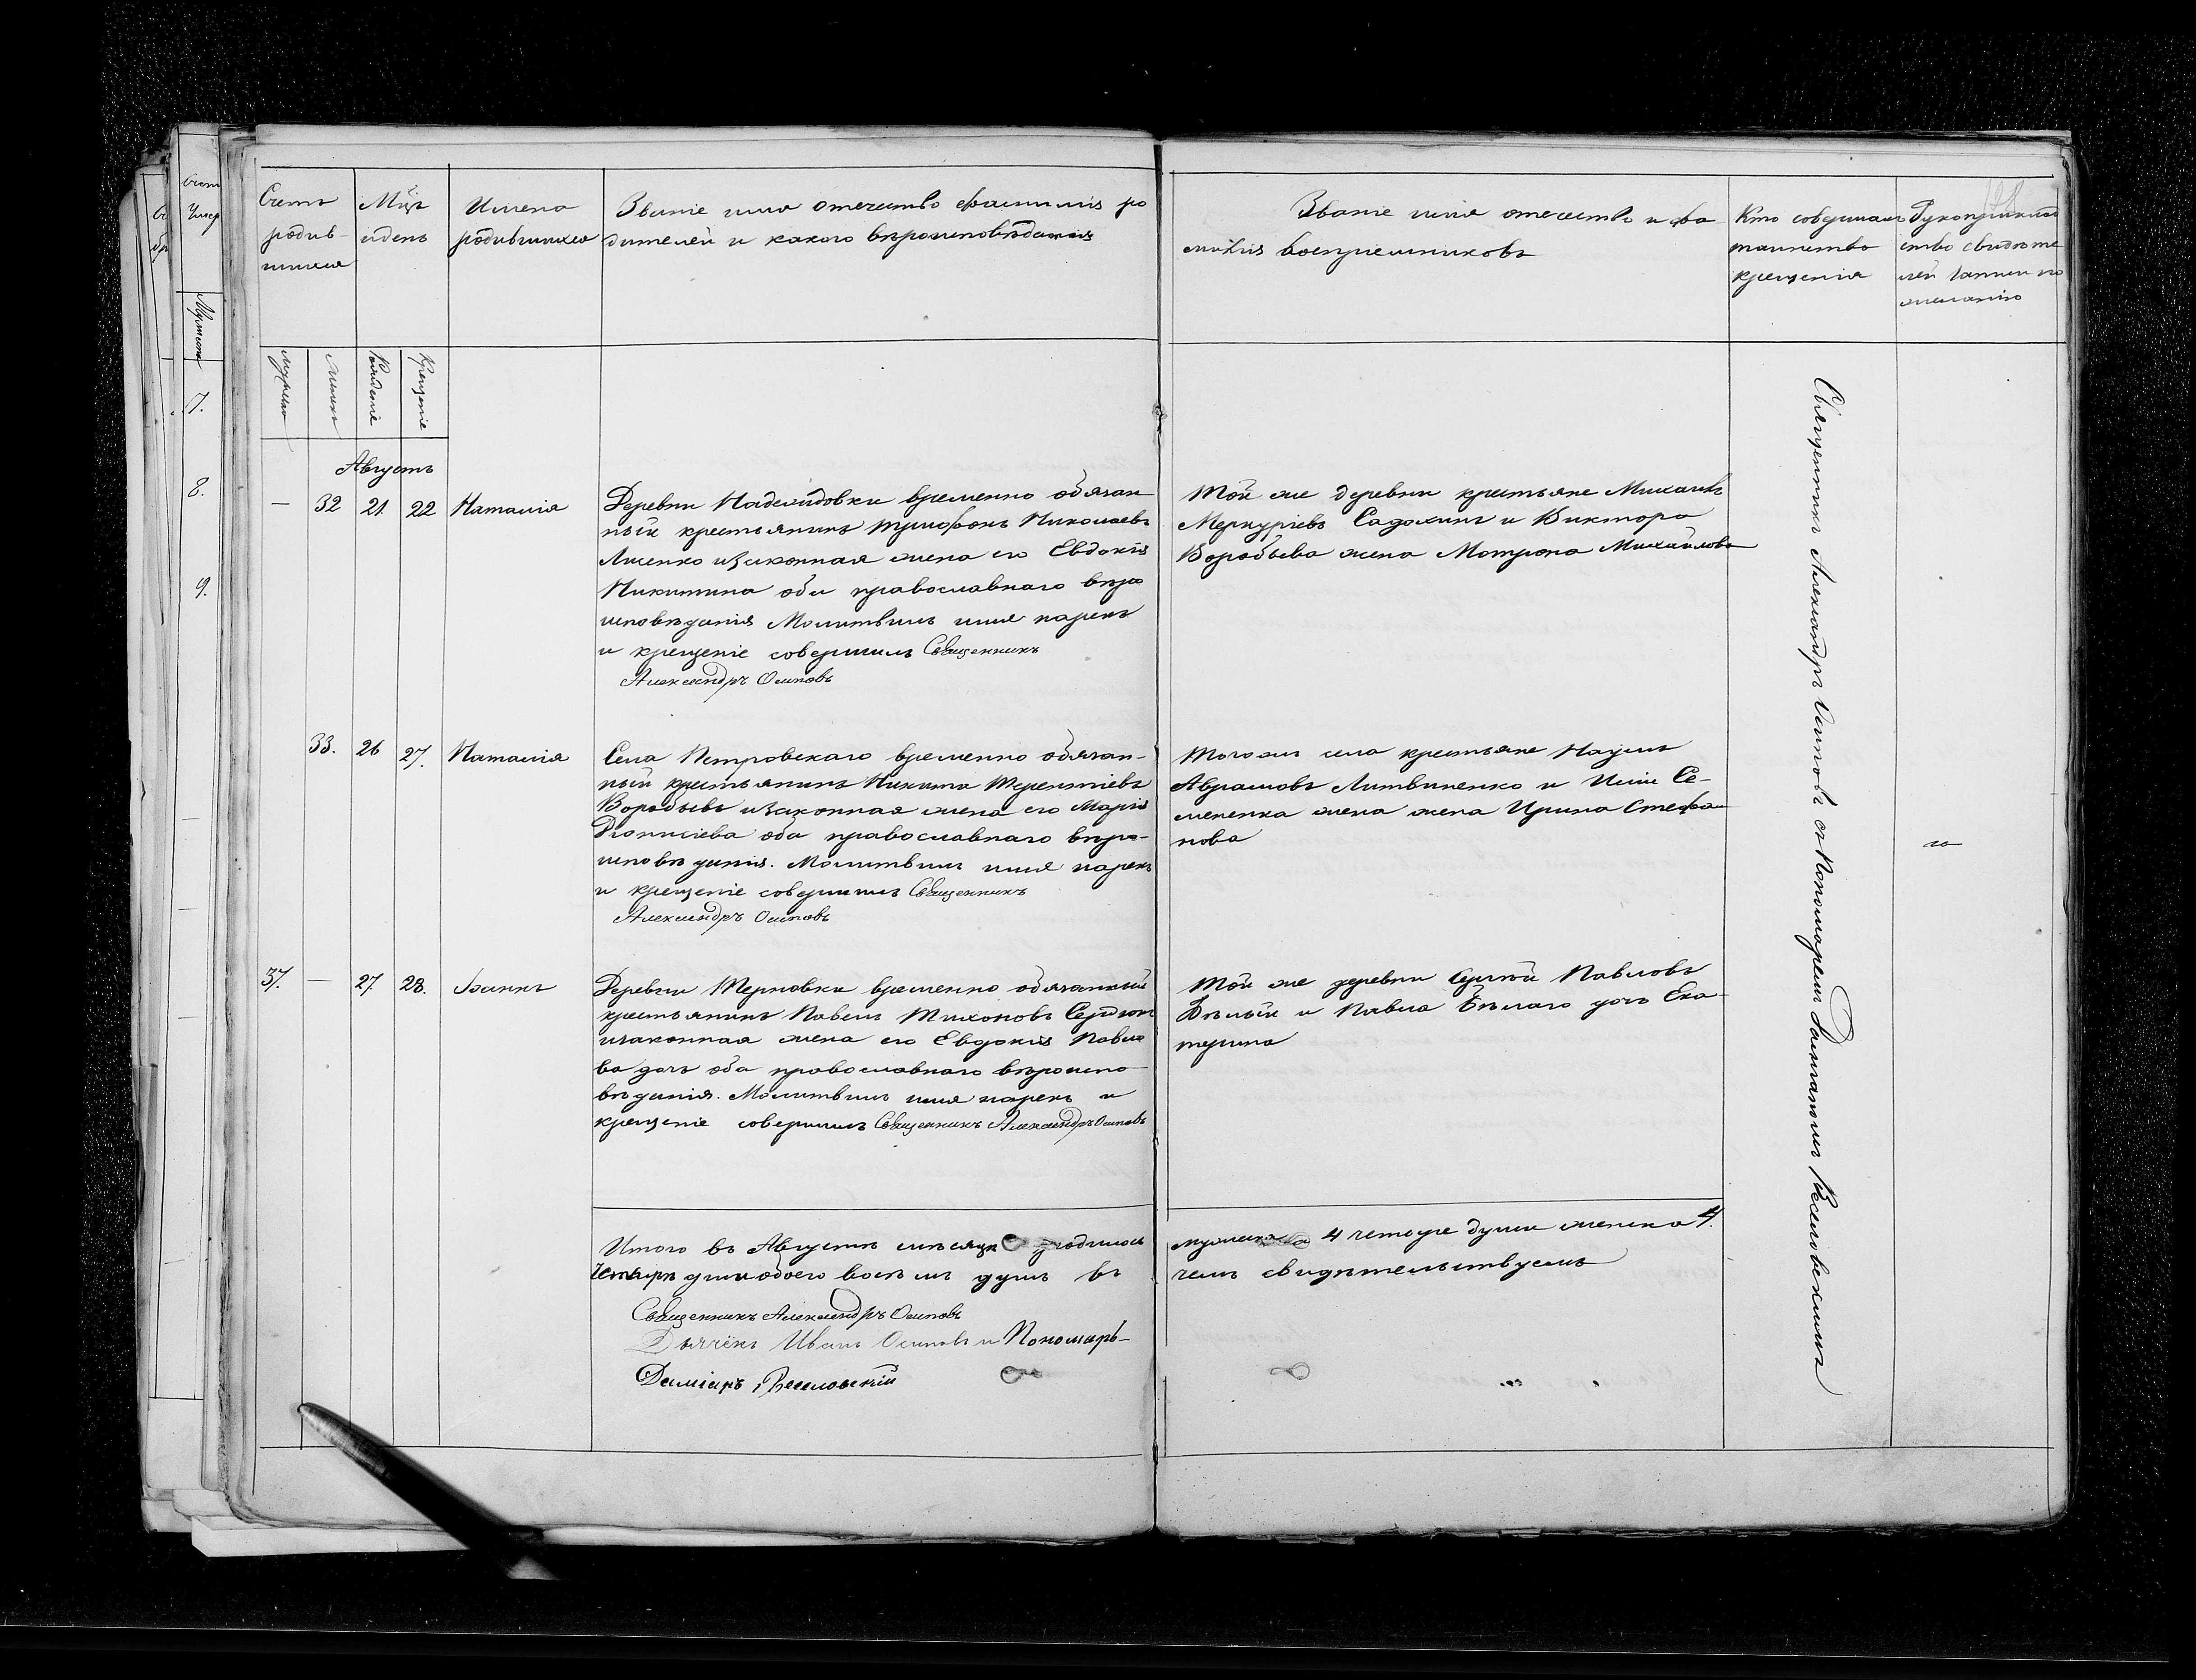 Счетъ
родив-
шихся
Мцъ
и день
Имена
родившихся
Званіе имя отечество фамилія ро
дителей и какого вѣроисповѣданія
Званіе имя отечество и фа
милія воспріемниковъ
Кто совершалъ
таинство
крещенія
Рукоприклад
ство свидѣте
лей записи по
желанію
мужска
женск
Рожденіе
Крещеніе
Августъ
— 32 21. 22 Наталія
Деревни Надежидовки временно обязан
ный крестьянинъ Трифонъ Николаевъ
Лисенко и законная жена его Евдокія
Никитина оба православнаго вѣро
исповѣданія Молитвилъ имя нарекъ
и крещеніе совершилъ Священникъ
Александръ Осиповъ
Той же деревни крестьяне Михаилъ
Меркуріевъ и Виктора
Воробьева жена Мотрона Михайлова
33. 26 27. Наталія
Села Петровскаго временно обязан-
ный крестьянинъ Никита Терентіевъ
Воробьевъ и законная жена его Марія
Діонисіева оба православнаго вѣро-
исповѣданія. Молитвилъ имя нарекъ
и крещеніе совершилъ Священникъ
Александръ Осиповъ
Того же села крестьяне Наумъ
Аврамовъ Литвиненко и Се-
мененка жена жена Ирина Стефа
нова
37. — 27. 28. Іоаннъ
Деревни Терновки временно обязанный
крестьянинъ Павелъ Тихоновъ Сердюкъ
и законная жена его Евдокія Павло
ва дочь оба православнаго вѣроиспо
вѣданія. Молитвилъ имя нарекъ и
крещеніе совершилъ Священникъ Александръ Осиповъ
Той же деревни Сергѣй Павловъ
Бѣлый и Павла Бѣлаго дочь Ека
терина
Священникъ Александръ Осиповъ съ Пономаремъ Даміаномъ Веселовскимъ
Итого въ Августѣ мѣсяцѣ родилось
четыре душъ обоего восѣмъ душъ въ
мужска 4 четыре души женска 4.
чемъ свидѣтельствуемъ
Священникъ Александръ Осиповъ
Дьячекъ Иванъ Осиповъ и Пономарь-
Даміанъ Веселовскій
7.
8.
9.